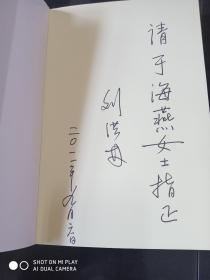 请于海燕女士指正
刘洪
二〇一一年九月六日
SHOT ON MI PLAY
AI DUAL CAMERA